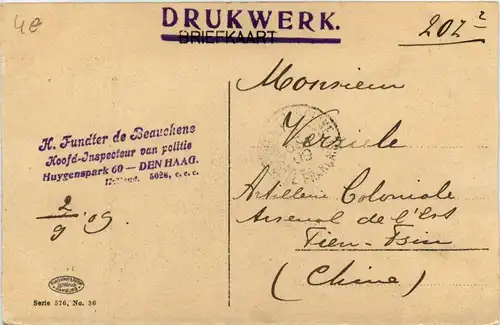 4e
DRUKWERK.
BRIEFKAART
207 2
Monsieur
H. Fundter de Beauchene
Hoofd-Inspecteur van politie
Huygenspark 60 — DEN HAAG.
Holland. 5026, c.c.c.
2/9 '09
Artillerie Coloniale
Arsenal de l'Est
Tien-Tsin
(Chine)
Serie 576, No. 36